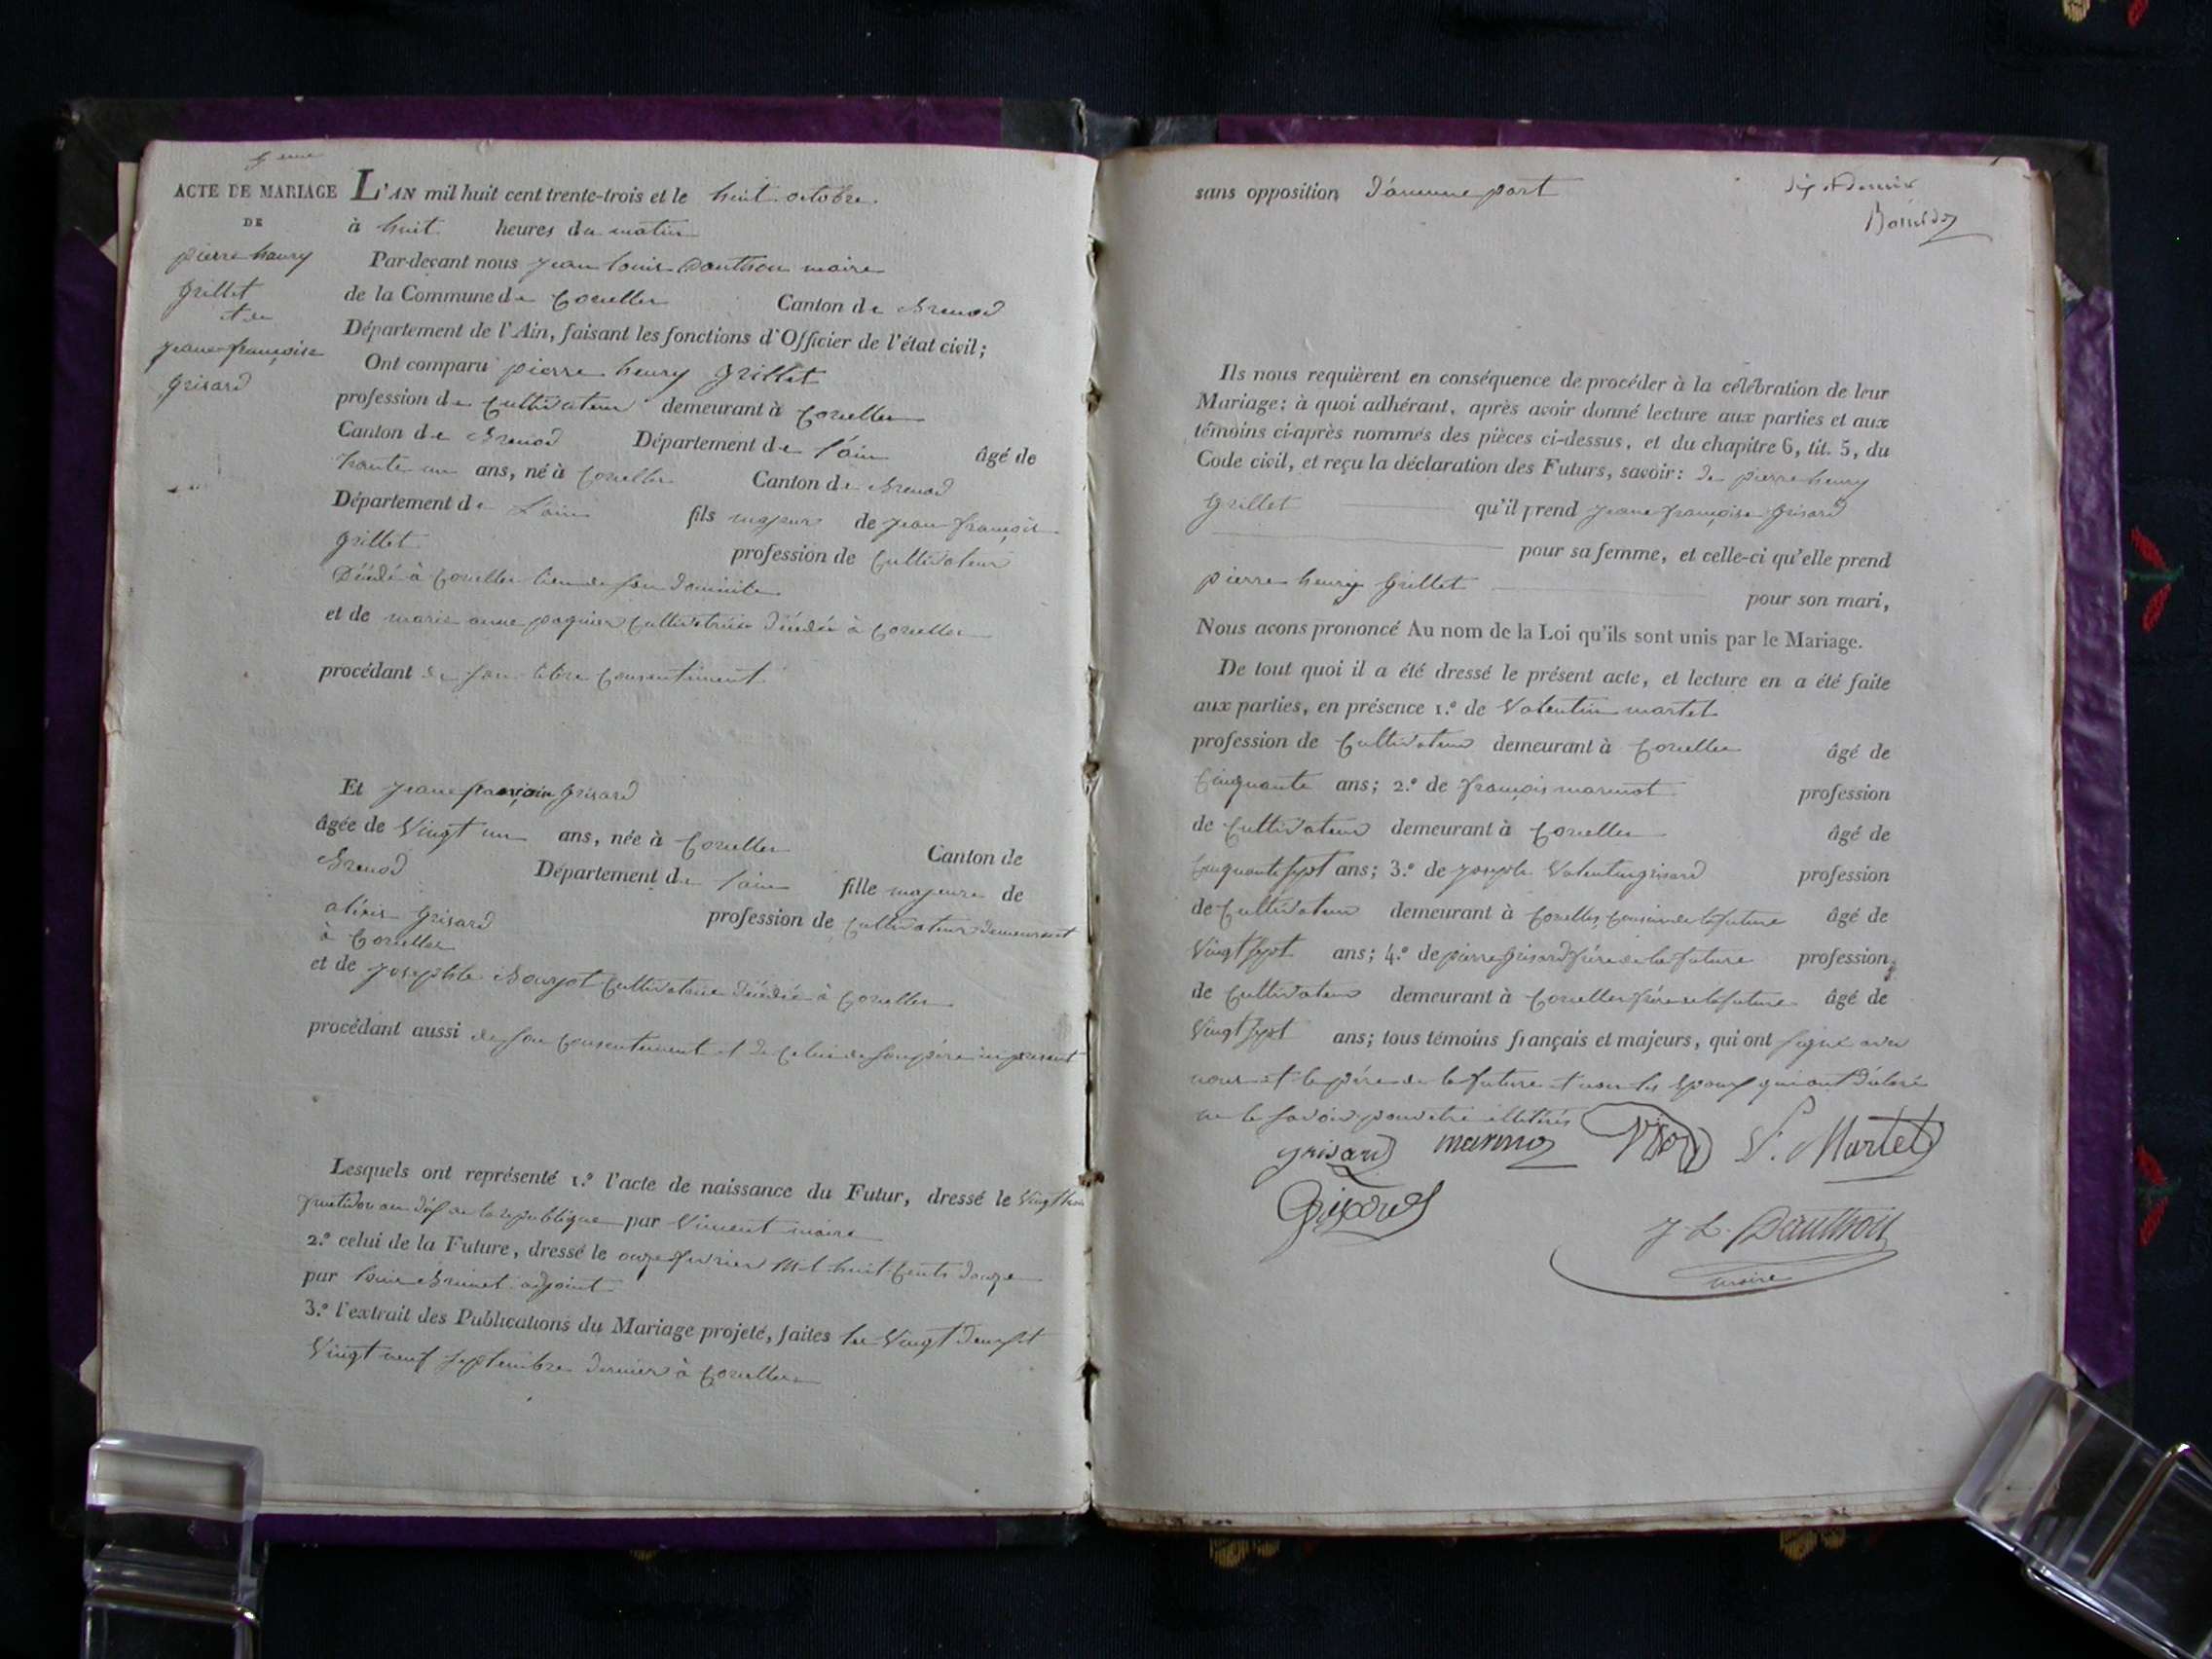 5eme
ACTE DE MARIAGE
DE
pierre henry
grillet
et de
jeane françoise
grisard
L'AN mil huit cent trente-trois et le huit octobre
à huit heures du matin
Par-devant nous jean louis Dauthon maire
de la Commune de Corcelles Canton de Brenod
Département de l'Ain, faisant les fonctions d'Officier de l'état civil;
Ont comparu pierre henry grillet
profession de Cultivateur demeurant à Corcelles
Canton de Brenod Département de l'ain âgé de
trante un ans, né à Corcelles Canton de Brenod
Département de L'ain fils majeur de jean françois
grillet profession de Cultivateur
Décédé à Corcelles lieu de son domicile
et de marie anne paquier Cultivatrice décédée à Corcelles
procédant de son libre Consentement
Et jeane françoise grisard
âgée de Vingt un ans, née à Corcelles Canton de
Brenod Département de l'ain fille majeure de
alexis grisard profession de Cultivateur demeurant
à Corcelles
et de josephte Bourjot Cultivatrice décédée à Corcelles
procédant aussi de son Consentement et de Celui de son père ici présent
Lesquels ont représenté 1.º l'acte de naissance du Futur, dressé le Vingt
fructidor an dix de la republique par Vincent maire
2.º celui de la Future, dressé le onze fevrier Mil huit Cents douze
par louis Brunet adjoint
3.º l'extrait des Publications du Mariage projeté, faites les Vingt deux et
Vingt neuf septembre dernier à Corcelles
sans opposition d'aucune part
Ils nous requièrent en conséquence de procéder à la célébration de leur
Mariage; à quoi adhérant, après avoir donné lecture aux parties et aux
témoins ci-après nommés des pièces ci-dessus, et du chapitre 6, tit. 5, du
Code civil, et reçu la déclaration des Futurs, savoir: de pierre henry
grillet qu'il prend jeane françoise grisard
pour sa femme, et celle-ci qu'elle prend
pierre henry grillet pour son mari,
Nous avons prononcé Au nom de la Loi qu'ils sont unis par le Mariage.
De tout quoi il a été dressé le présent acte, et lecture en a été faite
aux parties, en présence 1.º de Valentin martel
profession de Cultivateur demeurant à Corcelles âgé de
Cinquante ans; 2.º de françois marmot profession
de Cultivateur demeurant à Corcelles âgé de
Cinquante sept ans; 3.º de joseph Valentin grisard profession
de Cultivateur demeurant à Corcelles, Cousin de la future âgé de
Vingt sept ans; 4.º de pierre grisard frère de la future profession
de Cultivateur demeurant à Corcelles frère de la future âgé de
Vingt sept ans; tous témoins français et majeurs, qui ont signé avec
nous et le père de la future et non les Epoux qui ont déclaré
ne le savoir pour etre illiterés
grisard V. Martel
J L. Dauthon
maire